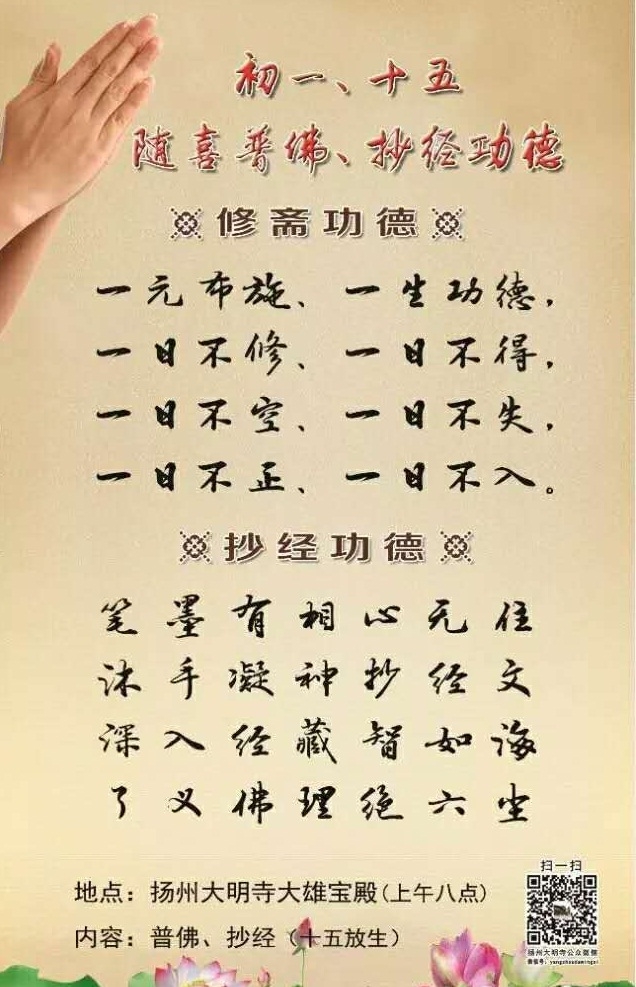 初一、十五
随喜普佛、抄经功德
修斋功德
一元布施、一生功德，
一日不修、一日不得，
一日不空、一日不失，
一日不正、一日不入。
抄经功德
笔墨有相心无住
沐手凝神抄经文
深入经藏智如海
了义佛理绝六尘
地点：扬州大明寺大雄宝殿(上午八点)
内容：普佛、抄经（十五放生）
扫一扫
扬州大明寺公众微信
微信号：yangzhoudamingsi